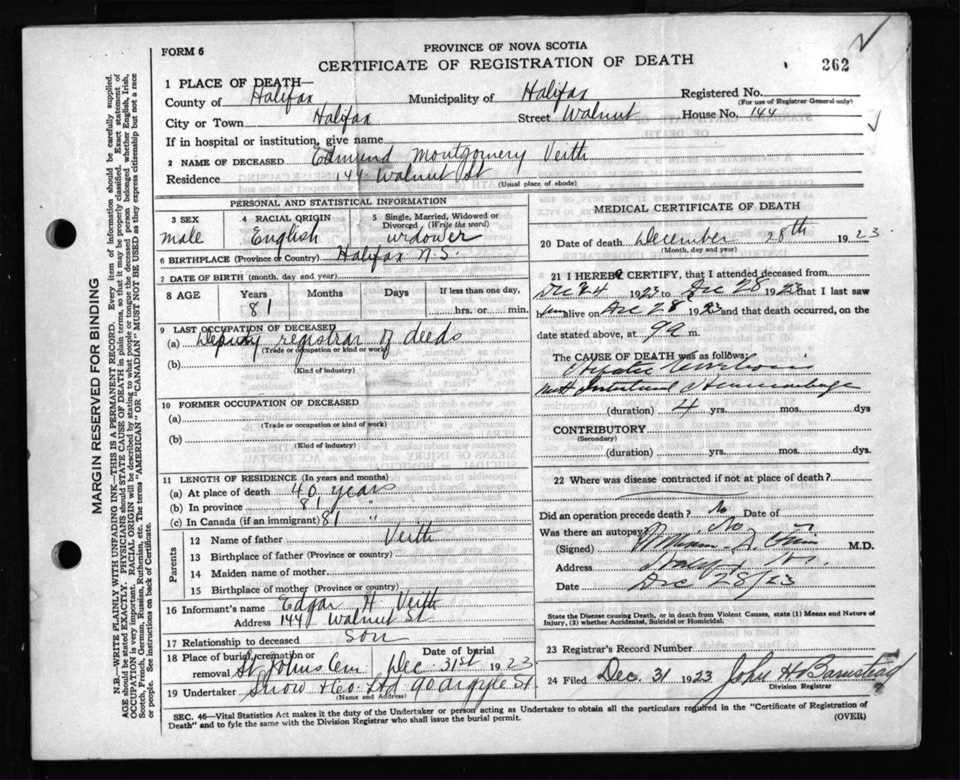 FORM 6
PROVINCE OF NOVA SCOTIA
CERTIFICATE OF REGISTRATION OF DEATH
262
1 PLACE OF DEATH—
County of Halifax Municipality of Halifax Registered No.
(For use of Registrar General only)
City or Town Halifax Street Walnut House No. 144
If in hospital or institution, give name
2 NAME OF DECEASED Edmund Montgomery Veith
Residence 144 Walnut St
(Usual place of abode)
PERSONAL AND STATISTICAL INFORMATION
3 SEX 4 RACIAL ORIGIN 5 Single, Married, Widowed or Divorced (Write the word)
male English widower
6 BIRTHPLACE (Province or Country) Halifax N.S.
7 DATE OF BIRTH (month, day and year)
8 AGE Years Months Days If less than one day,
81 hrs. or min.
9 LAST OCCUPATION OF DECEASED
(a) Deputy registrar of deeds
(Trade or occupation or kind of work)
(b)
(Kind of industry)
10 FORMER OCCUPATION OF DECEASED
(a)
(Trade or occupation or kind of work)
(b)
(Kind of industry)
11 LENGTH OF RESIDENCE (In years and months)
(a) At place of death 40 years
(b) In province 81 "
(c) In Canada (if an immigrant) 81 "
Parents
12 Name of father Veith
13 Birthplace of father (Province or country)
14 Maiden name of mother
15 Birthplace of mother (Province or country)
16 Informant's name Edgar H Veith
Address 144 Walnut St
17 Relationship to deceased Son
18 Place of burial, cremation or removal St Johns Cem Date of burial Dec 31st 1923
19 Undertaker Snow & Co Ltd 90 Argyle St
(Name and Address)
MEDICAL CERTIFICATE OF DEATH
20 Date of death December 28th 1923
(Month, day and year)
21 I HEREBY CERTIFY, that I attended deceased from
1923 to Dec 28 1923 that I last saw
him alive on Dec 28 1923 and that death occurred, on the
date stated above, at 9 a m.
The CAUSE OF DEATH was as follows:
Intestinal Hemorrhage
(duration) 4 yrs. mos. dys
CONTRIBUTORY
(Secondary)
(duration) yrs. mos. dys.
22 Where was disease contracted if not at place of death?
Did an operation precede death? No Date of
Was there an autopsy? No
(Signed) William M.D.
Address
Date Dec 28/23
State the Disease causing Death, or in death from Violent Causes, state (1) Means and Nature of
Injury, (2) whether Accidental, Suicidal or Homicidal.
23 Registrar's Record Number
24 Filed Dec 31 1923 John H Barnstead
Division Registrar
SEC. 46—Vital Statistics Act makes it the duty of the Undertaker or person acting as Undertaker to obtain all the particulars required in the "Certificate of Registration of
Death" and to fyle the same with the Division Registrar who shall issue the burial permit.
(OVER)
MARGIN RESERVED FOR BINDING
N.B.—WRITE PLAINLY WITH UNFADING INK—THIS IS A PERMANENT RECORD. Every item of information should be carefully supplied.
AGE should be stated EXACTLY. PHYSICIANS should STATE CAUSE OF DEATH in plain terms, so that it may be properly classified. Exact statement of
OCCUPATION is very important. RACIAL ORIGIN will be described by stating to what people or tongue the deceased person belonged whether English, Irish,
Scotch, French, German, Russian, Ruthenian, etc. The terms "AMERICAN" or "CANADIAN" MUST NOT BE USED as they express citizenship but not a race
or people. See instructions on back of Certificate.